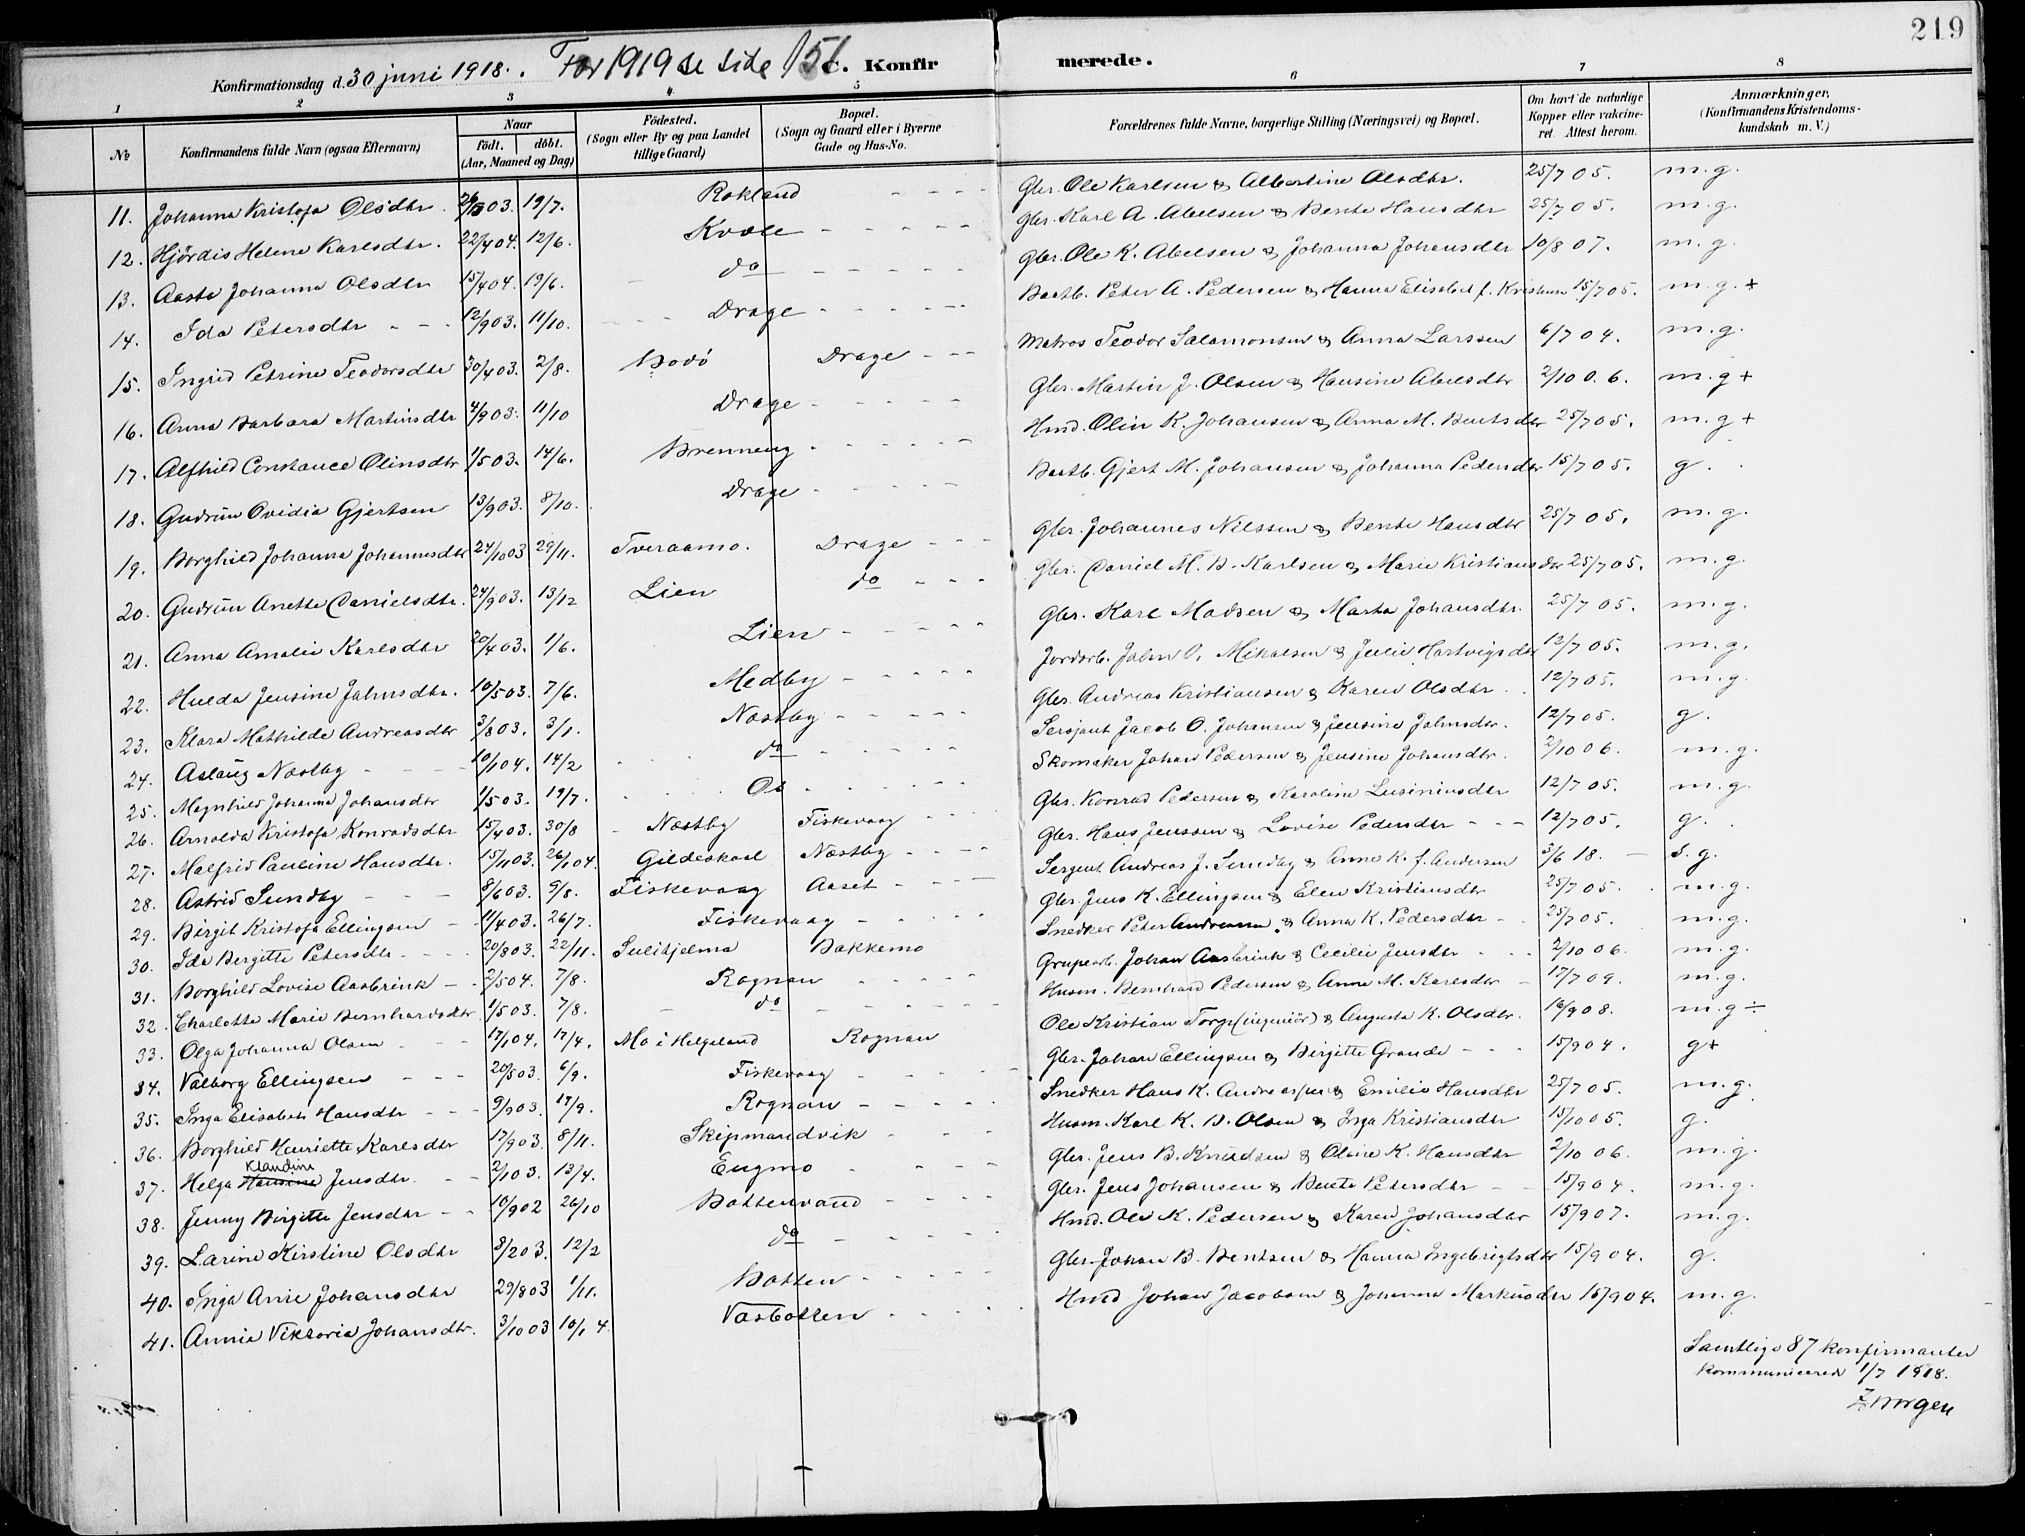 219
Konfirmationsdag d. 30 juni 1918. For 1919 se side 151 C. Konfirmerede.
1 2 3 4 5 6 7 8
No
Konfirmandens fulde Navn (ogsaa Efternavn)
Naar
født. døbt.
(Aar, Maaned og Dag)
Födested.
(Sogn eller By og paa Landet
tillige Gaard)
Bopæl.
(Sogn og Gaard eller i Byerne
Gade og Hus-No.
Forældrenes fulde Navne, borgerlige Stilling (Næringsvei) og Bopæl.
Om havt de naturlige
Kopper eller vakcine-
ret. Attest herom.
Anmærkninger,
(Konfirmandens Kristendoms-
kundskab m. V.)
11. Johanna Kristofa Olsdtr. 03. 19/7. Rokland Gbr. Ole Karlsen & Albertine Olsdtr. 25/7 05. m.g.
12. Hjørdis Helene Karlsdtr. 22/4 04. 12/6. Kvæle Gbr. Karl A. Abelsen & Bente Hansdtr 25/7 05. m.g.
13. Aasta Johanna Olsdtr 15/4 04. 19/6. do Gbr. Ole K. Abelsen & Johanna Johansdtr 10/8 07. m.g.
14. Ida Petersdtr 12/9 03. 11/10. Drage Peter A. Pedersen & Hanna Elisabet f. Kristensen 15/7 05. m.g.+
15. Ingrid Petrine Teodorsdtr 30/4 03. 2/8. Bodø Drage Matros Teodor Salamonsen & Anna Larssen 6/7 04. m.g.
16. Anna Barbara Martinsdtr 4/9 03. 11/10 Drage Gbr. Martin J. Olsen & Hansine Abelsdtr 2/10 0.6. m.g+
17. Alfhild Constance Olinsdtr 1/5 03. 14/6. Brenneng Hmd. Olin K. Johansen & Anna M. Bentsdtr 25/7 05. m.g+
18. Gudrun Ovidia Gjertsen 13/9 03. 8/10. Drage Gjert M. Johansen & Johanna Pedersdtr 15/7 05. g.
19. Borghild Johanna Johannesdtr 24/10 03 29/11. Tveraamo. Drage Gbr. Johannes Nilssen & Bente Hansdtr 25/7 05. m.g.
20. Gudrun Anette Danielsdtr. 24/9 03. 13/12 Lien do Gbr. Daniel M. B. Karlsen & Marie Kristiansdtr 25/7 05. m.g.
21. Anna Amalie Karlsdtr 20/4 03. 1/6. Lien Gbr. Karl Madsen & Marta Johansdtr. 25/7 05. m.g.
22. Hulda Jensine Jahnsdtr. 10/5 03. 7/6. Medby Jordarb. Jahn O. Mikalsen & Julie Hartvigsdtr 12/7 05. m.g.
23. Klara Mathilde Andreasdtr 3/8 03. 3/1. Næstby Gbr. Andreas Kristiansen & Karen Olsdtr. 12/7 05. m.g.
24. Aslaug Næstby 10/1 04. 14/2 do Sersjant Jacob O. Johansen & Jensine Jahnsdtr. 12/7 05. g.
25. Magnhild Johanna Johansdtr 1/5 03. 19/7. Os Skomaker Johan Pedersen & Jensine Johansdtr. 2/10 06. m.g.
26. Arnolda Kristofa Konradsdtr 15/4 03. 30/8 Næstby Fiskevaag Gbr. Konrad Pedersen & Karoline Lusiniusdtr 12/7 05. m.g.
27. Malfrid Pauline Hansdtr. 15/11 03. 26/1 04. Gildeskaal Næstby Gbr. Hans Jenssen & Lovise Pedersdtr 12/7 05. g.
28. Astrid Sundby 8/6 03. 9/8. Fiskevaag Aaset Sergent Andreas J. Sundby & Anne K. f. Andersen 3/6 18. s.g.
29. Birgit Kristofa Ellingsen 11/4 03. 26/7. Fiskevaag Gbr. Jens K. Ellingsen & Elen Kristiansdtr 25/7 05. m.g.
30. Ida Bergitte Petersdtr. 20/8 03. 22/11. Sulitjelma Bakkemo Snedker Peter Andreassen & Anna K. Pedersdtr 25/7 05. m.g.
31. Borghild Lovise Aasbrink 2/5 04. 7/8. Rognan Grubearb. Johan Aasbrink & Cecilie Jensdtr 2/10 06. m.g.
32. Charlotte Marie Bernhardsdtr 1/5 03. 7/8. do Husm. Bernhard Pedersen & Anne M. Karlsdtr 17/7 09. m.g.
33. Olga Johanna Olsen 17/1 04. 17/4. Mo i Helgeland Rognan Ole Kristian Torge (ingeniör) & Augusta K. Olsdtr. 16/9 08. m.g÷
34. Valborg Ellingsen 20/5 03. 6/9. Fiskevaag Gbr. Johan Ellingsen & Birgitte Grande 15/9 04. g+
35. Inga Elisabet Hansdtr 9/9 03. 17/9. Rognan Snedker Hans K. Andreassen & Emilie Hansdtr 25/7 05. m.g.
36. Borghild Henriette Karlsdtr 17/9 03. 8/11. Skipmandvik Husm. Karl K. B. Olsen & Inga Kristiansdtr 15/10 05. g.
37. Helga Klaudine Hansine Jensdtr. 2/1 03. 13/4. Engmo Gbr. Jens B. Knudsen & Olsine K. Hansdtr 2/10 06. m.g.
38. Jenny Birgitte Jensdtr 10/9 02 26/10 Bottenvand Gbr. Jens Johansen & Bente Petersdtr 15/9 04. m.g.
39. Larine Kirstine Olsdtr 8/2 03. 12/2 do Hmd. Ole K. Pedersen & Karen Johansdtr 15/9 07. m.g.
40. Inga Anie Johansdtr 29/8 03 1/11. Botten Gbr. Johan B. Bentsen & Hanna Ingebrigtsdtr 15/9 04. g.
41. Annia Viktoria Johansdtr. 3/10 03 10/1 4. Vasbotten Hmd Johan Jacobsen & Johanna Markusdtr 15/9 04. m.g.
Samtlige 87 konfirmanter
kommunicered 1/7 1918.